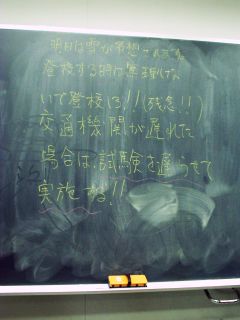 明日は雪が予想されます。
登校する時に無理しな
いで登校しろ!!(残念!!)
交通機関が遅れた
場合は、試験を遅らせて
実施する!!